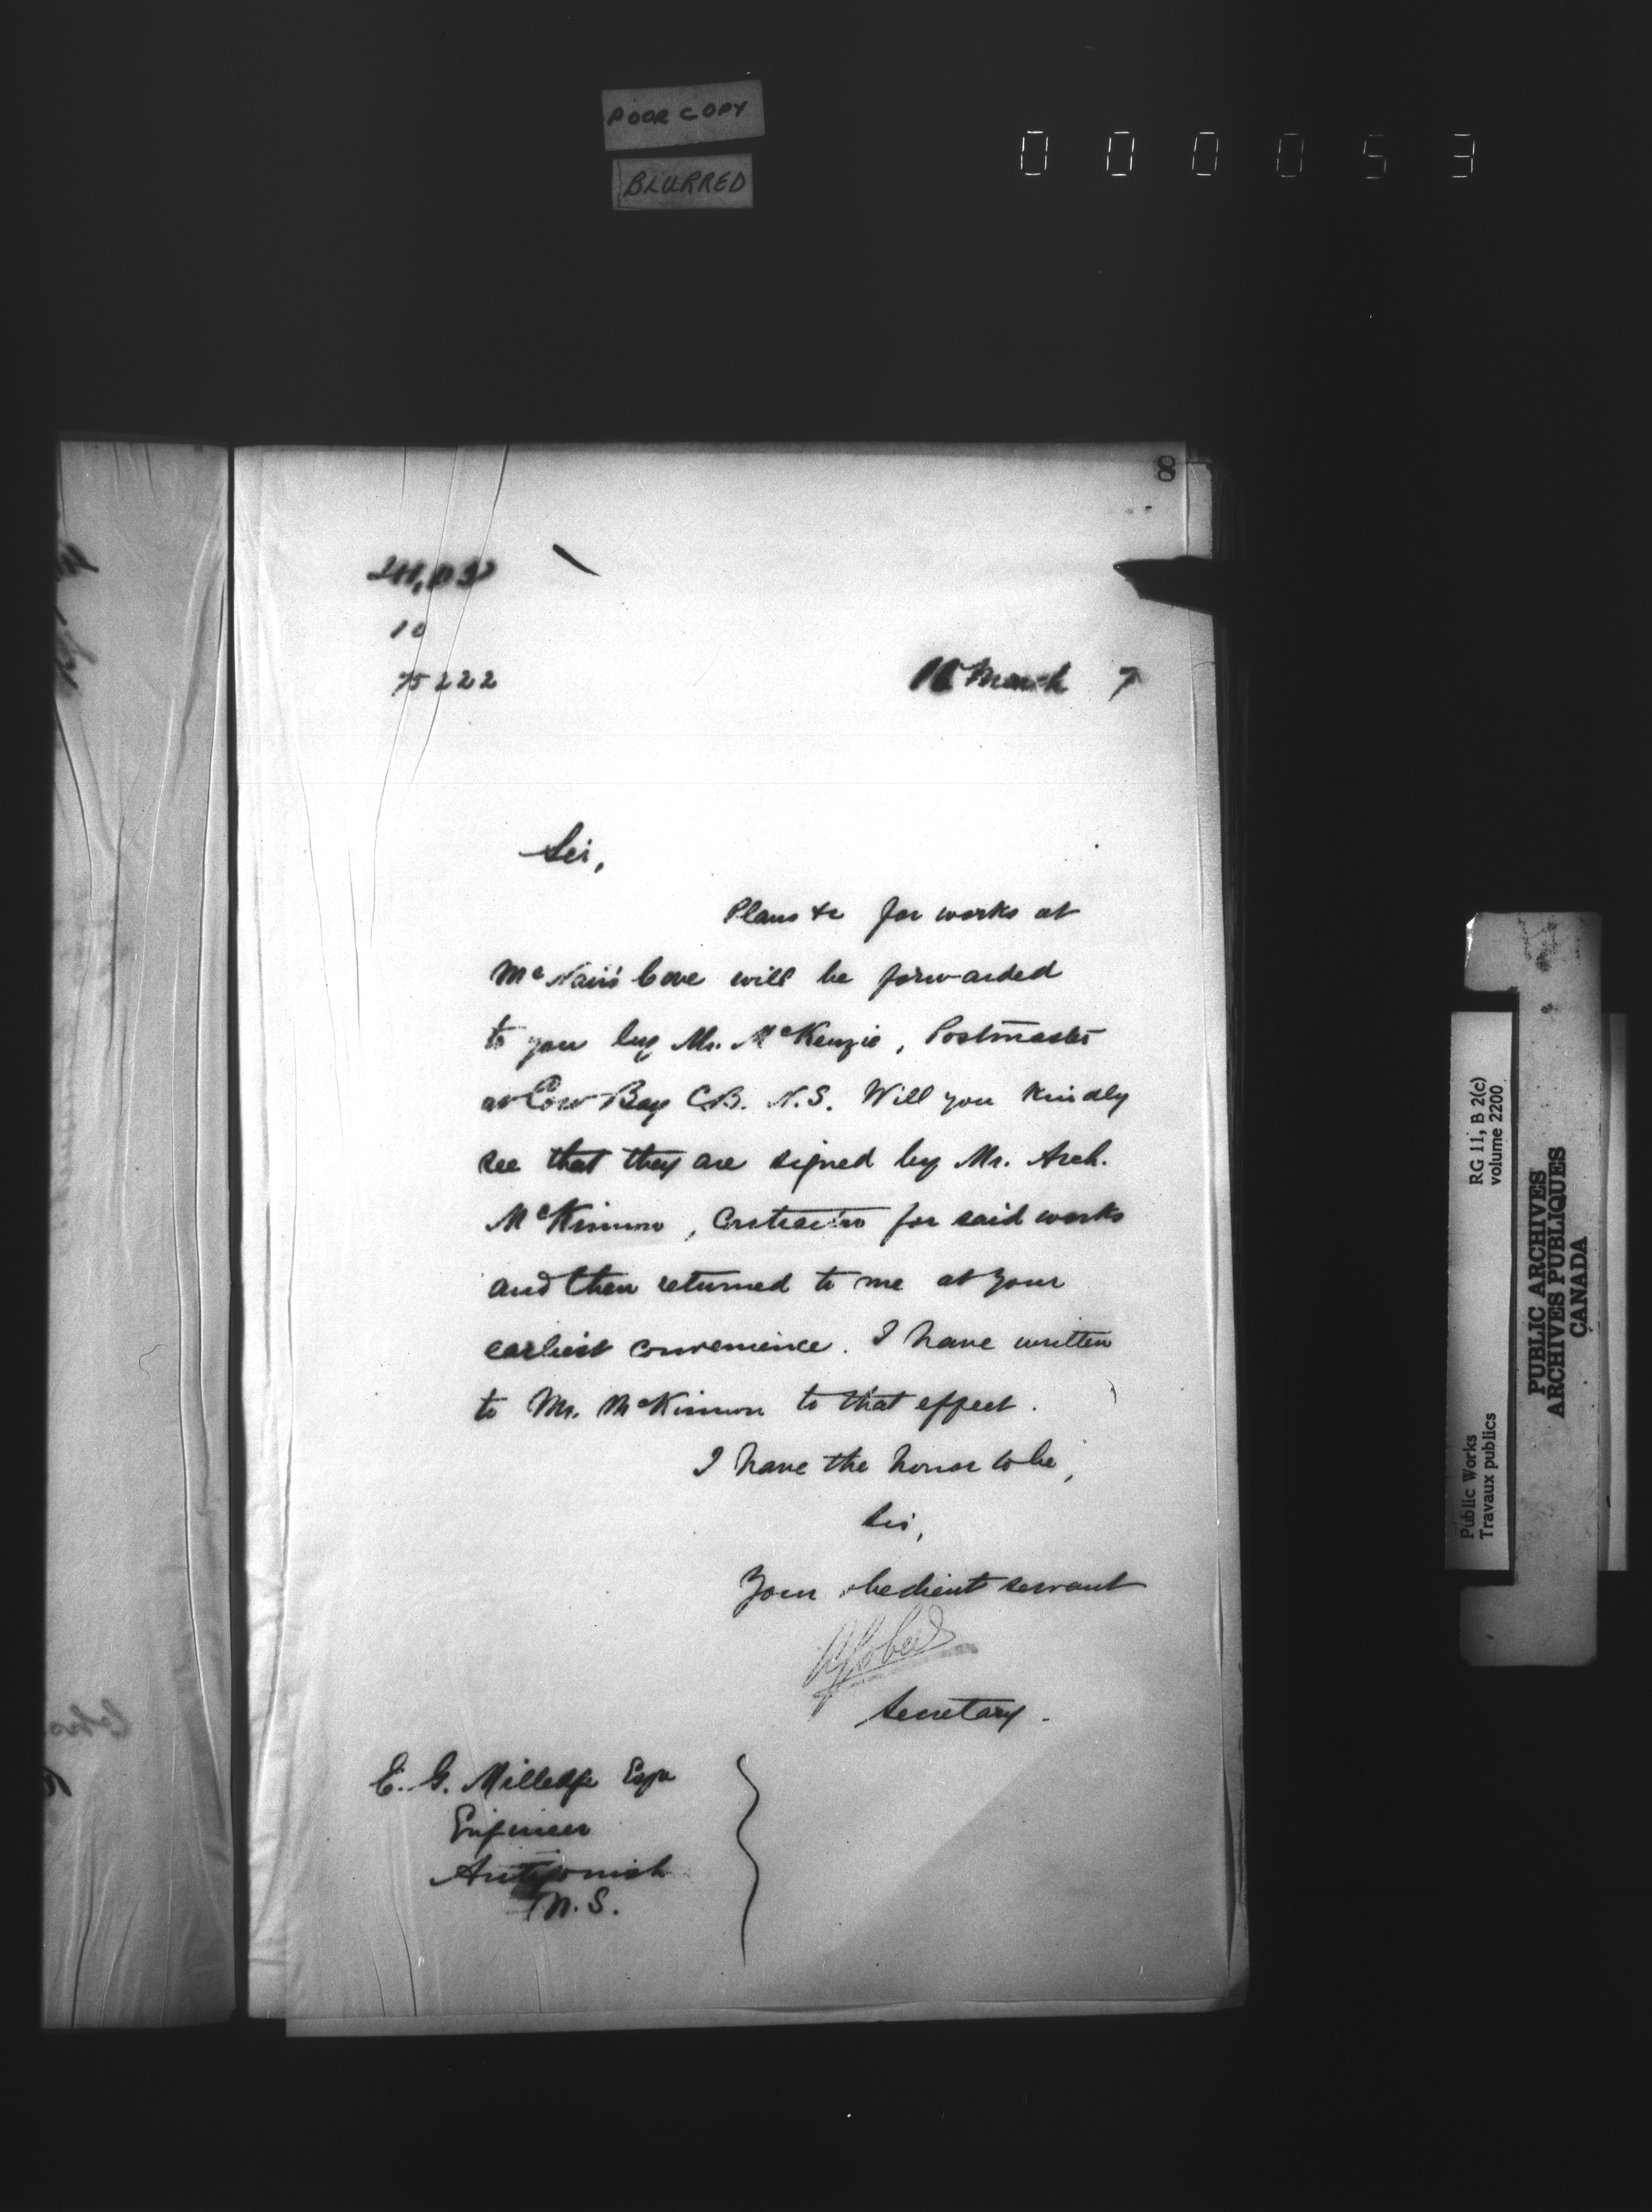 POOR COPY
BLURRED
0 0 0 0 5 3
8
10
75222
March 7
Sir,
Plans &c for works at
McNair's Cove will be forwarded
to you by Mr. McKenzie, Postmaster
at Cow Bay C.B. N.S. Will you kindly
see that they are signed by Mr. Arch.
McKinnon, Contractor for said works
and then returned to me at your
earliest convenience. I have written
to Mr. McKinnon to that effect.
I have the honor to be,
Sir,
Your obedient servant
Secretary.
E. G. Milledge Esqr
Engineer
Antigonish
N.S.
Public Works
Travaux publics
RG 11, B 2(c)
volume 2200
PUBLIC ARCHIVES
ARCHIVES PUBLIQUES
CANADA